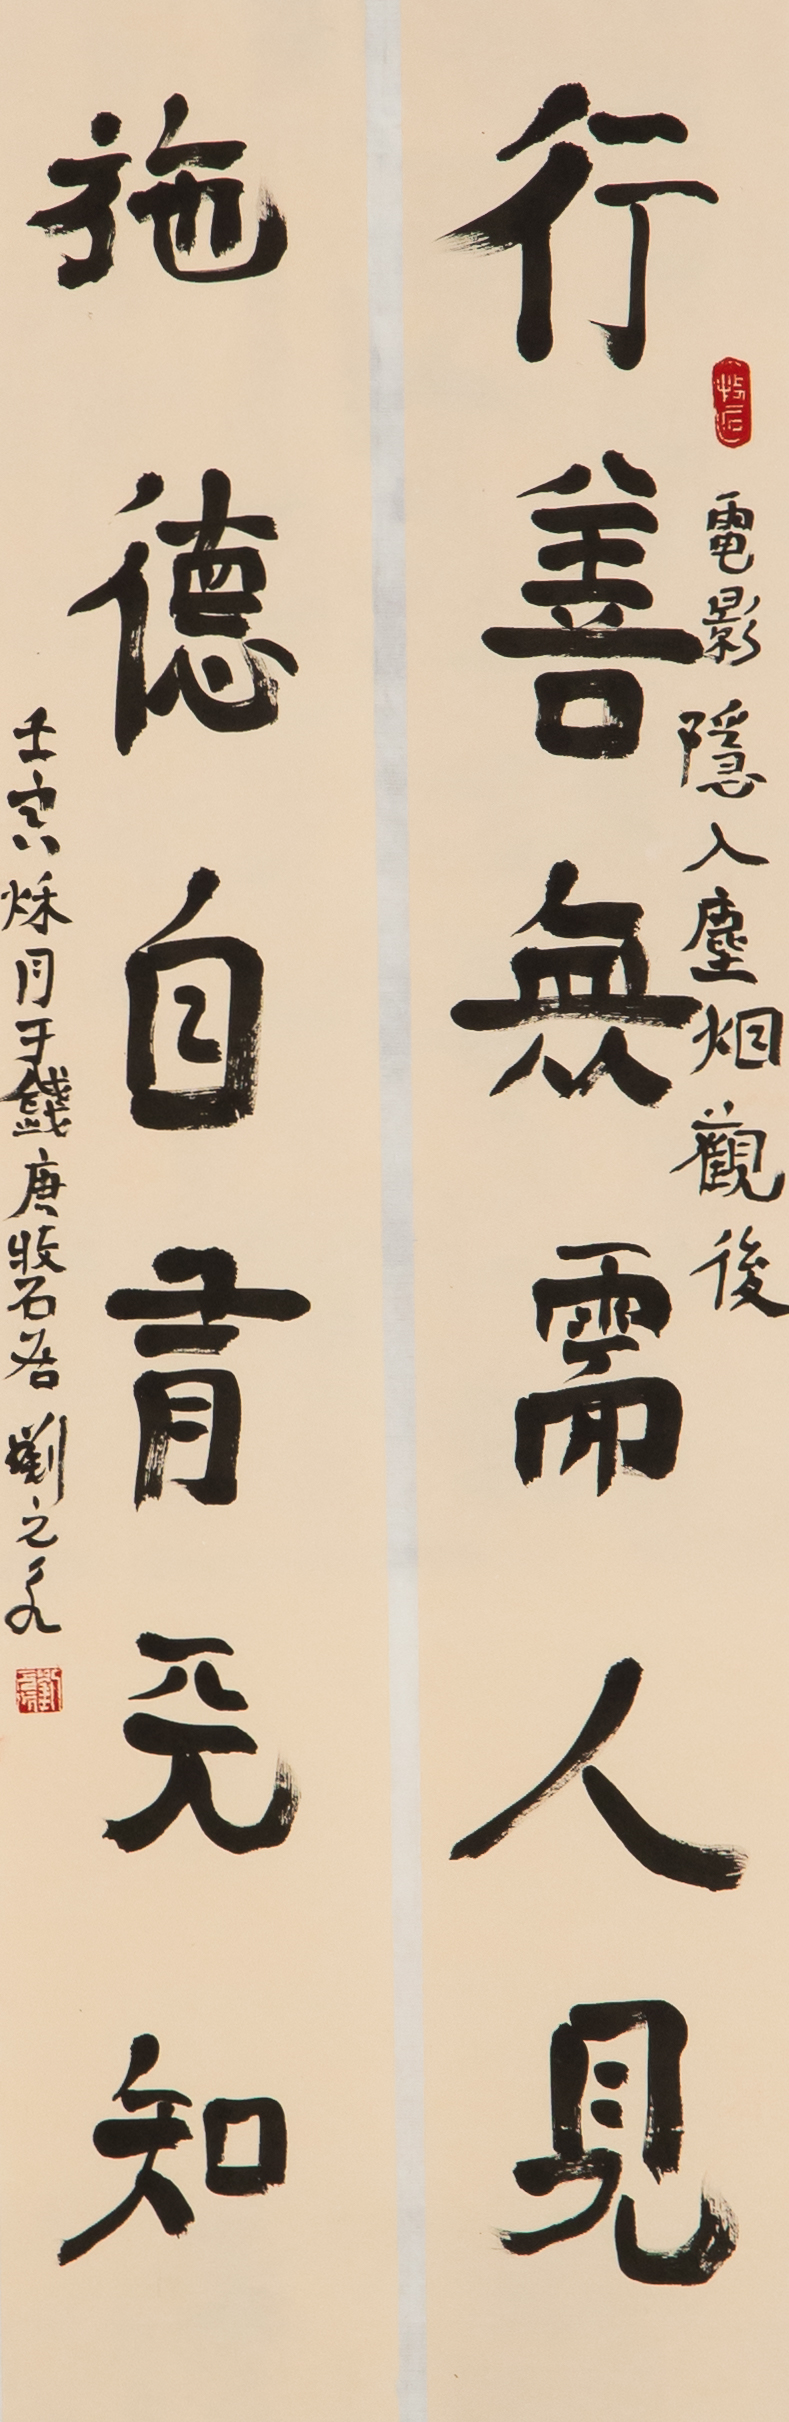 電影隱入塵烟觀後
行善無需人見
施德自有天知
壬寅秌月于錢唐牧石居劉元